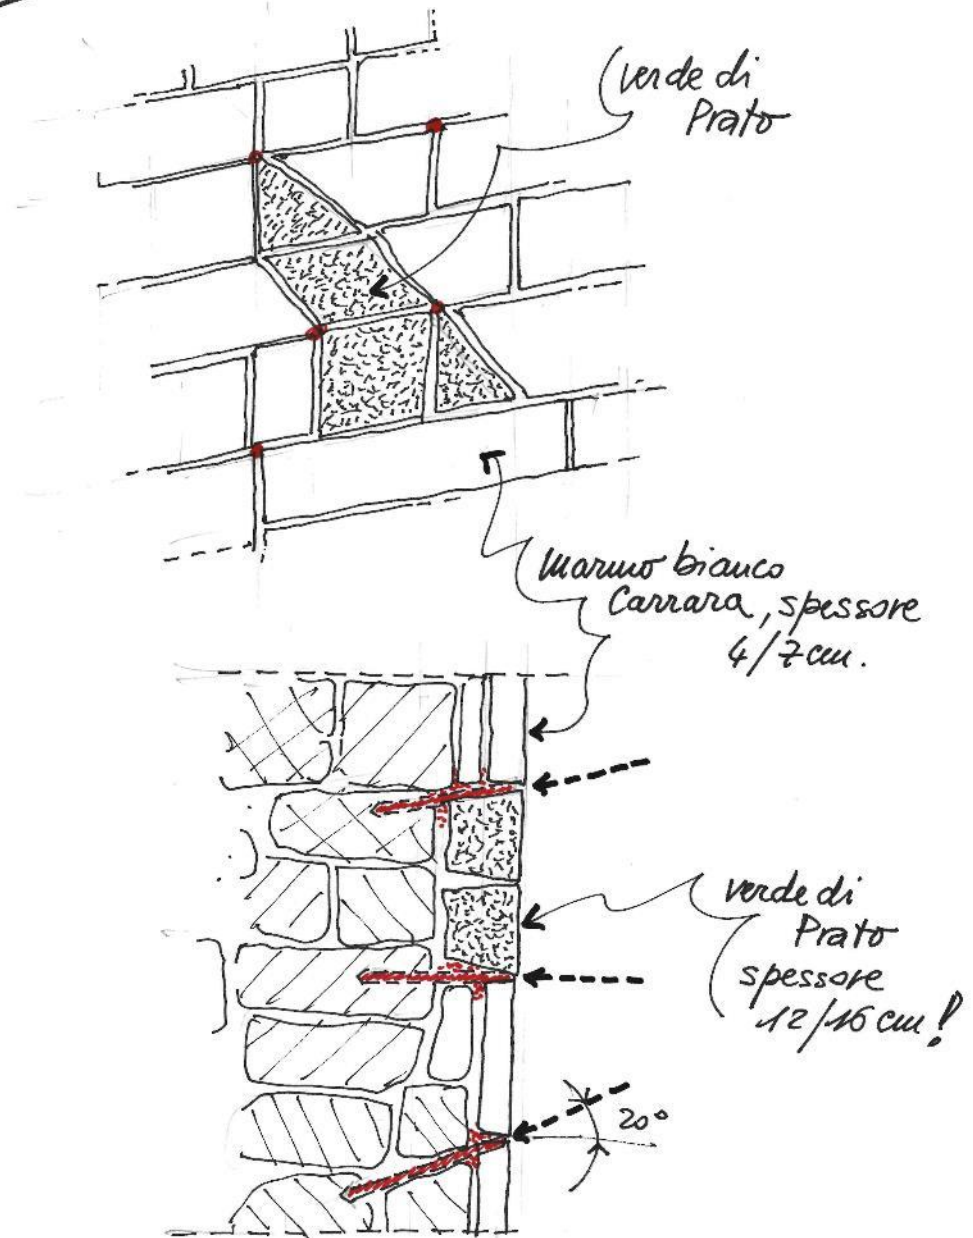 verde di
Prato
marmo bianco
Carrara, spessore
4/7 cm.
verde di
Prato
spessore
12/16 cm!
20°